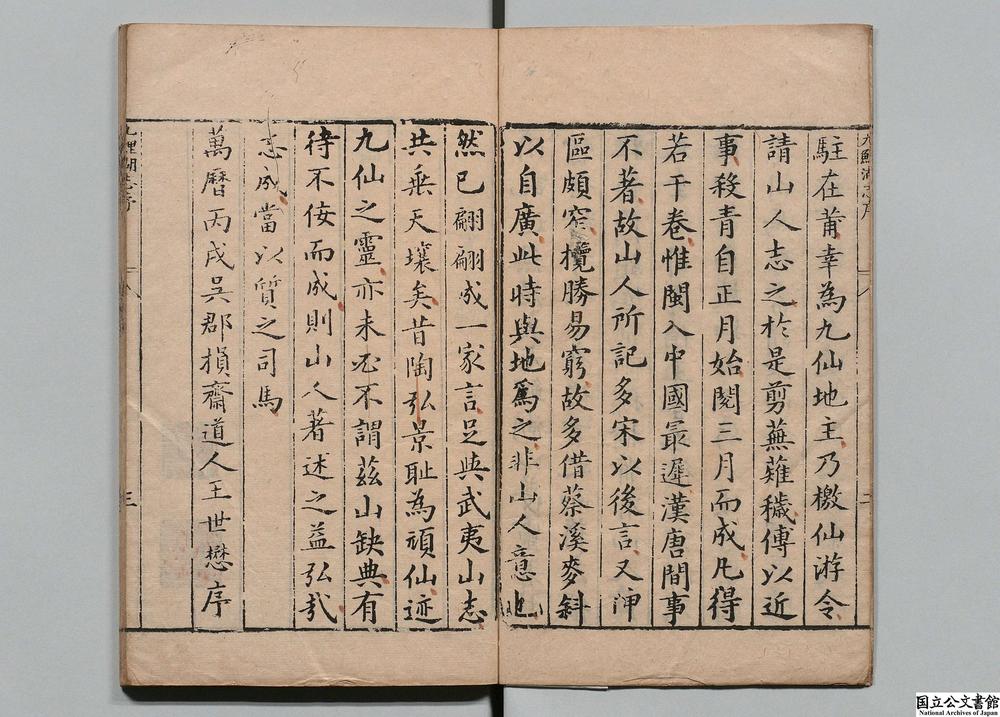 駐在莆幸為九仙地主乃檄仙游令
請山人志之於是剪蕪薙穢傅以近
事殺青自正月始閱三月而成凡得
若干卷惟閩入中國最遲漢唐間事
不著故山人所記多宋以後言又神
區頗窄攬勝易窮故多借蔡溪麥斜
以自廣此時與地為之非山人意也
然已翩翩成一家言足與武夷山志
共乘天壤矣昔陶弘景耻為頑仙迹
九仙之靈亦未必不謂茲山缺典有
待不佞而成則山人著述之益弘哉
志成當以質之司馬
萬曆丙戌吳郡損齋道人王世懋序
九鯉湖志序
三
国立公文書館
National Archives of Japan